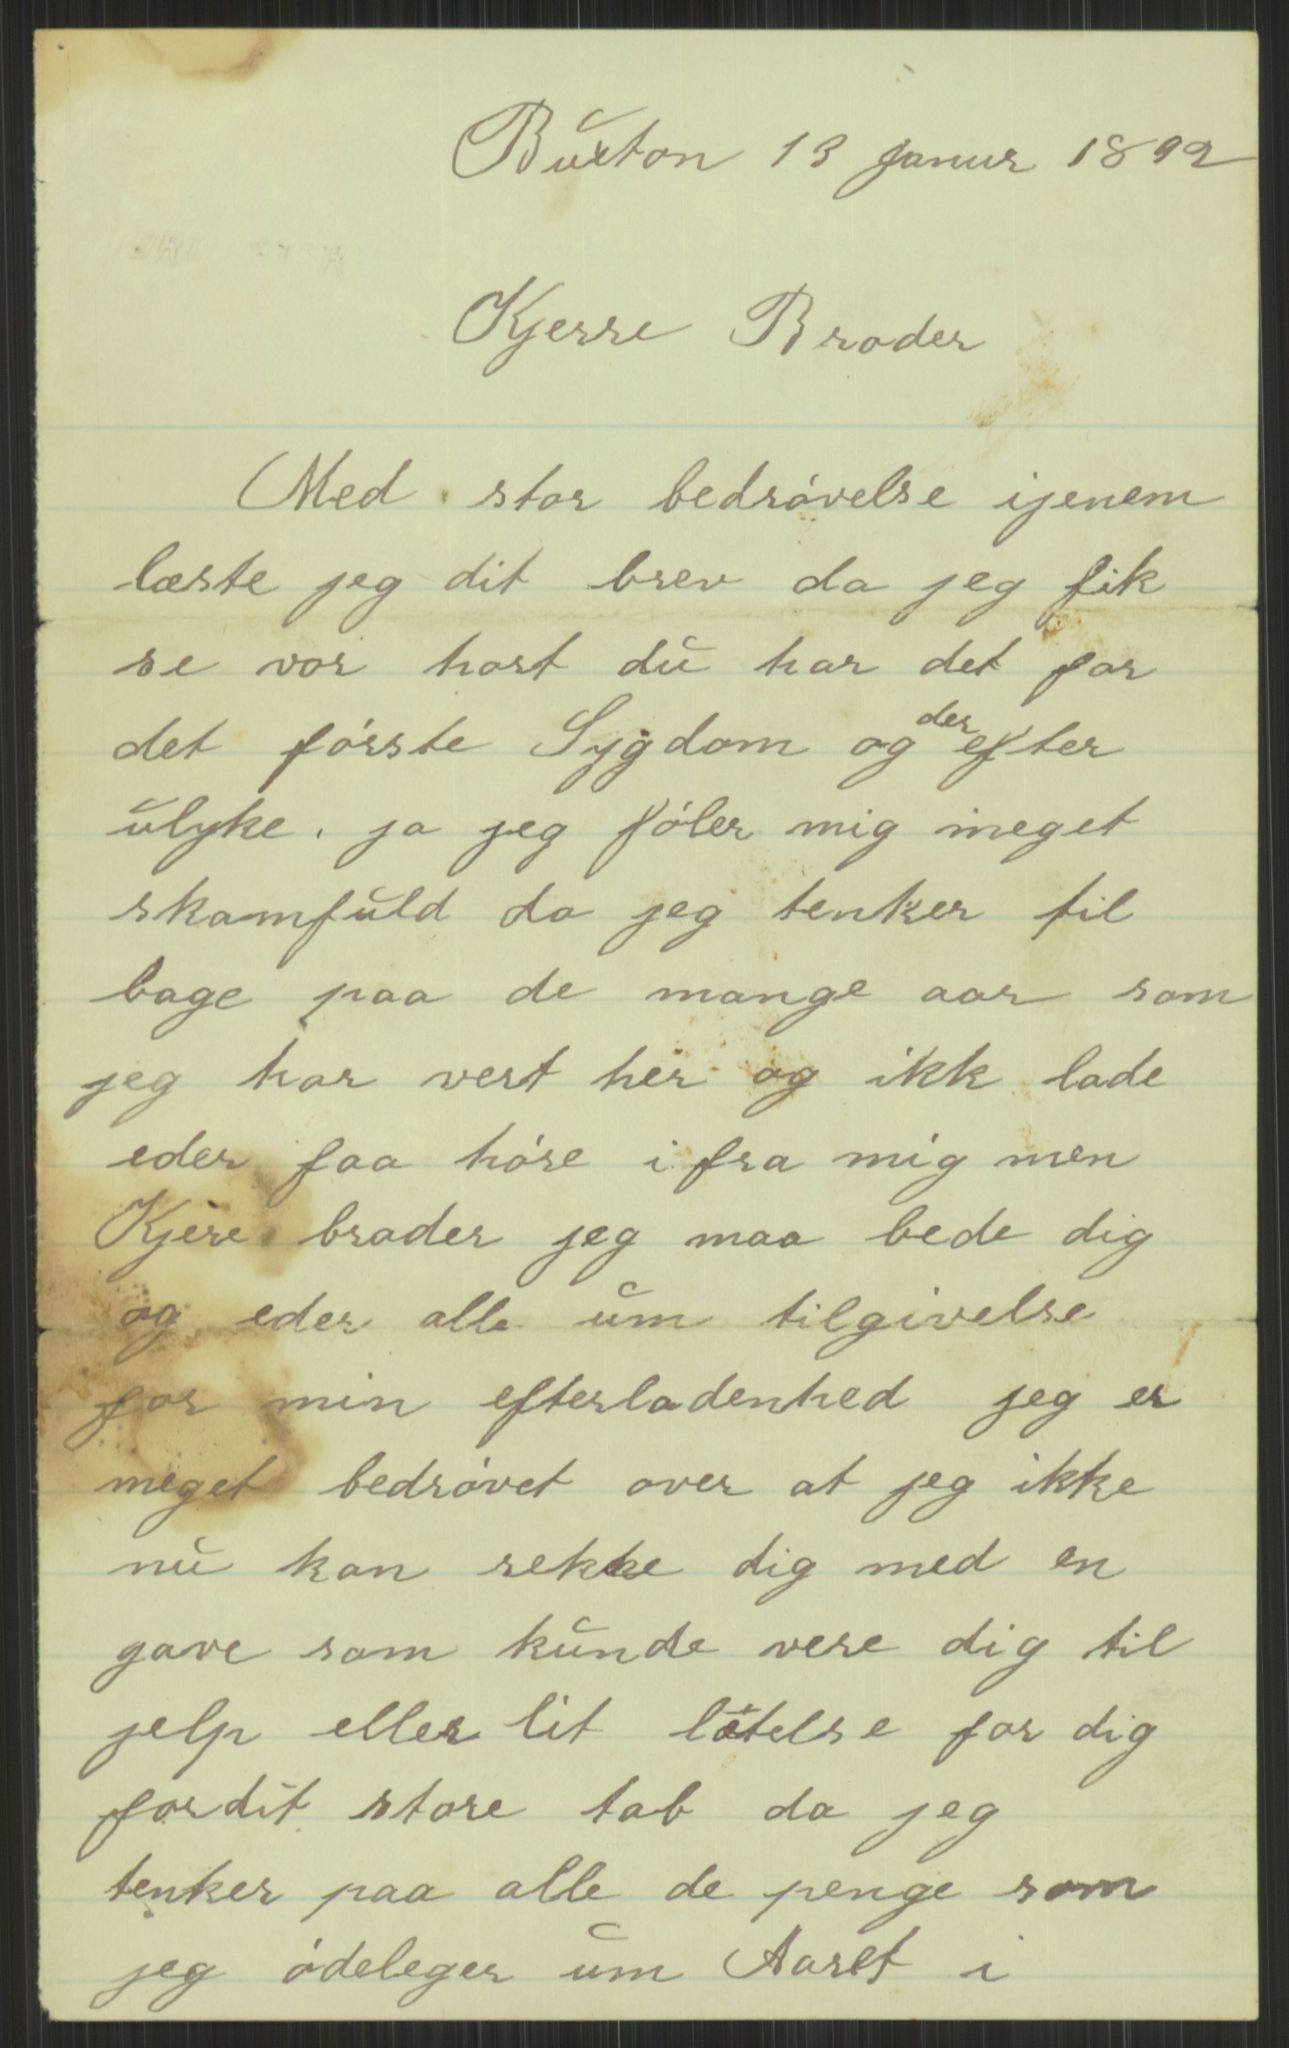 Buxton 13 Janur 1892
Kjerre Broder
Med stor bedróvelse ijenem
læste jeg dit brev da jeg fik
se vor hart du har det for
det fórste Sygdom og der efter
ulyke. ja jeg fóler mig meget
skamfuld da jeg tenker til
bage paa de mange aar som
jeg har vert her og ikk lade
eder faa hóre ifra mig men
Kjere broder jeg maa bede dig
og eder alle um tilgivelse
for min efterladenhed jeg er
meget bedróvet over at jeg ikke
nu kan rekke dig med en
gave som kunde vere dig til
jelp eller lit for dig
for dit store tab da jeg
tenker paa alle de penge som
jeg ódeleger um Aaret i